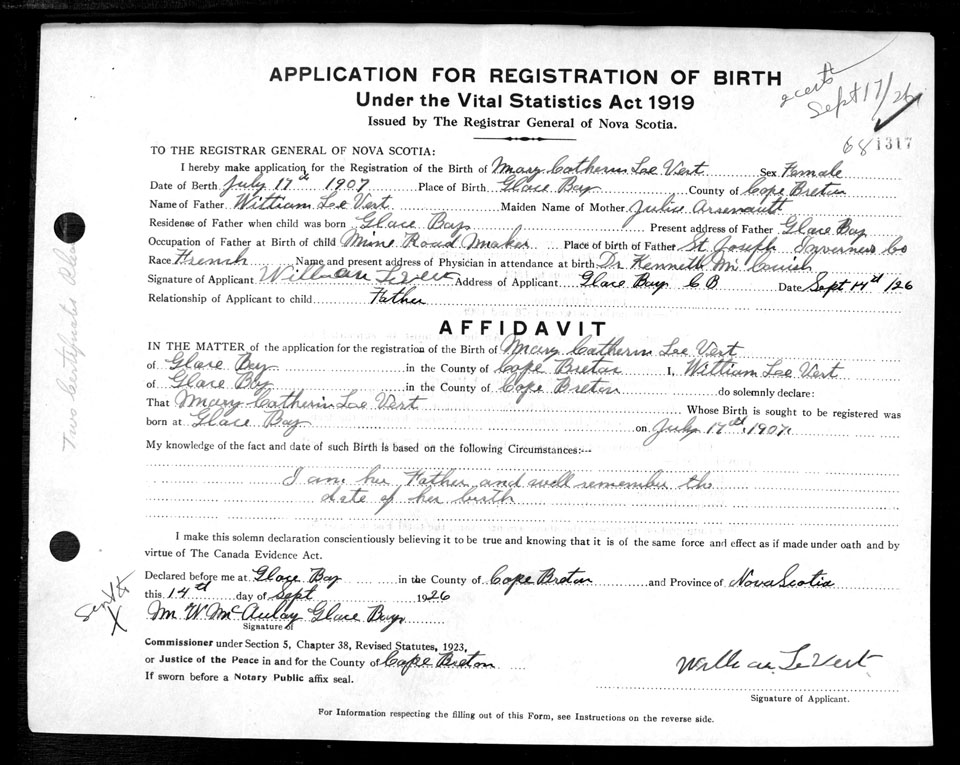 APPLICATION FOR REGISTRATION OF BIRTH
Under the Vital Statistics Act 1919
Issued by The Registrar General of Nova Scotia.
2 certs
Sept 17/26
681317
TO THE REGISTRAR GENERAL OF NOVA SCOTIA:
I hereby make application for the Registration of the Birth of Mary Catherin Le Vert Sex Female
Date of Birth July 17th 1907 Place of Birth Glace Bay County of Cape Breton
Name of Father William Le Vert Maiden Name of Mother Julie Arsenault
Residense of Father when child was born Glace Bay Present address of Father Glace Bay
Occupation of Father at Birth of child Mine Road Maker Place of birth of Father St Joseph Inverness Co
Race French Name and present address of Physician in attendance at birth Dr Kenneth
Signature of Applicant William LeVert Address of Applicant Glace Bay C B Date Sept 14th /26
Relationship of Applicant to child Father
AFFIDAVIT
IN THE MATTER of the application for the registration of the Birth of Mary Catherin Lee Vert
of Glace Bay in the County of Cape Breton I, William Lee Vert
of Glace Bay in the County of Cape Breton do solemnly declare:
That Mary Catherin Lee Vert Whose Birth is sought to be registered was
born at Glace Bay on July 17th 1907
My knowledge of the fact and date of such Birth is based on the following Circumstances:--
I am her Father and well remember the
date of her birth
I make this solemn declaration conscientiously believing it to be true and knowing that it is of the same force and effect as if made under oath and by
virtue of The Canada Evidence Act.
Declared before me at Glace Bay in the County of Cape Breton and Province of Nova Scotia
this 14th day of Sept 1926
M. W. McAulay Glace Bay
Signature of
Commissioner under Section 5, Chapter 38, Revised Statutes, 1923,
or Justice of the Peace in and for the County of Cape Breton
If sworn before a Notary Public affix seal.
William LeVert
Signature of Applicant.
For Information respecting the filling out of this Form, see Instructions on the reverse side.
Two Certificates